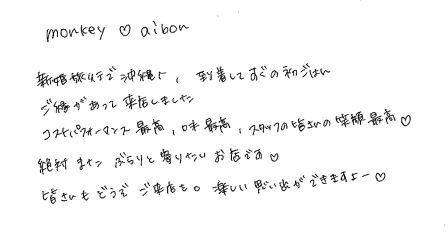 monkey ♡ aibon
新婚旅行で沖縄へ, 到着してすぐの初ごはん
ご縁があって来店しました
コストパフォーマンス最高, 味最高, スタッフの皆さんの笑顔最高♡
絶対またぶらりと寄りたいお店です♡
皆さんもどうぞご来店を。楽しい思い出ができますよー♡